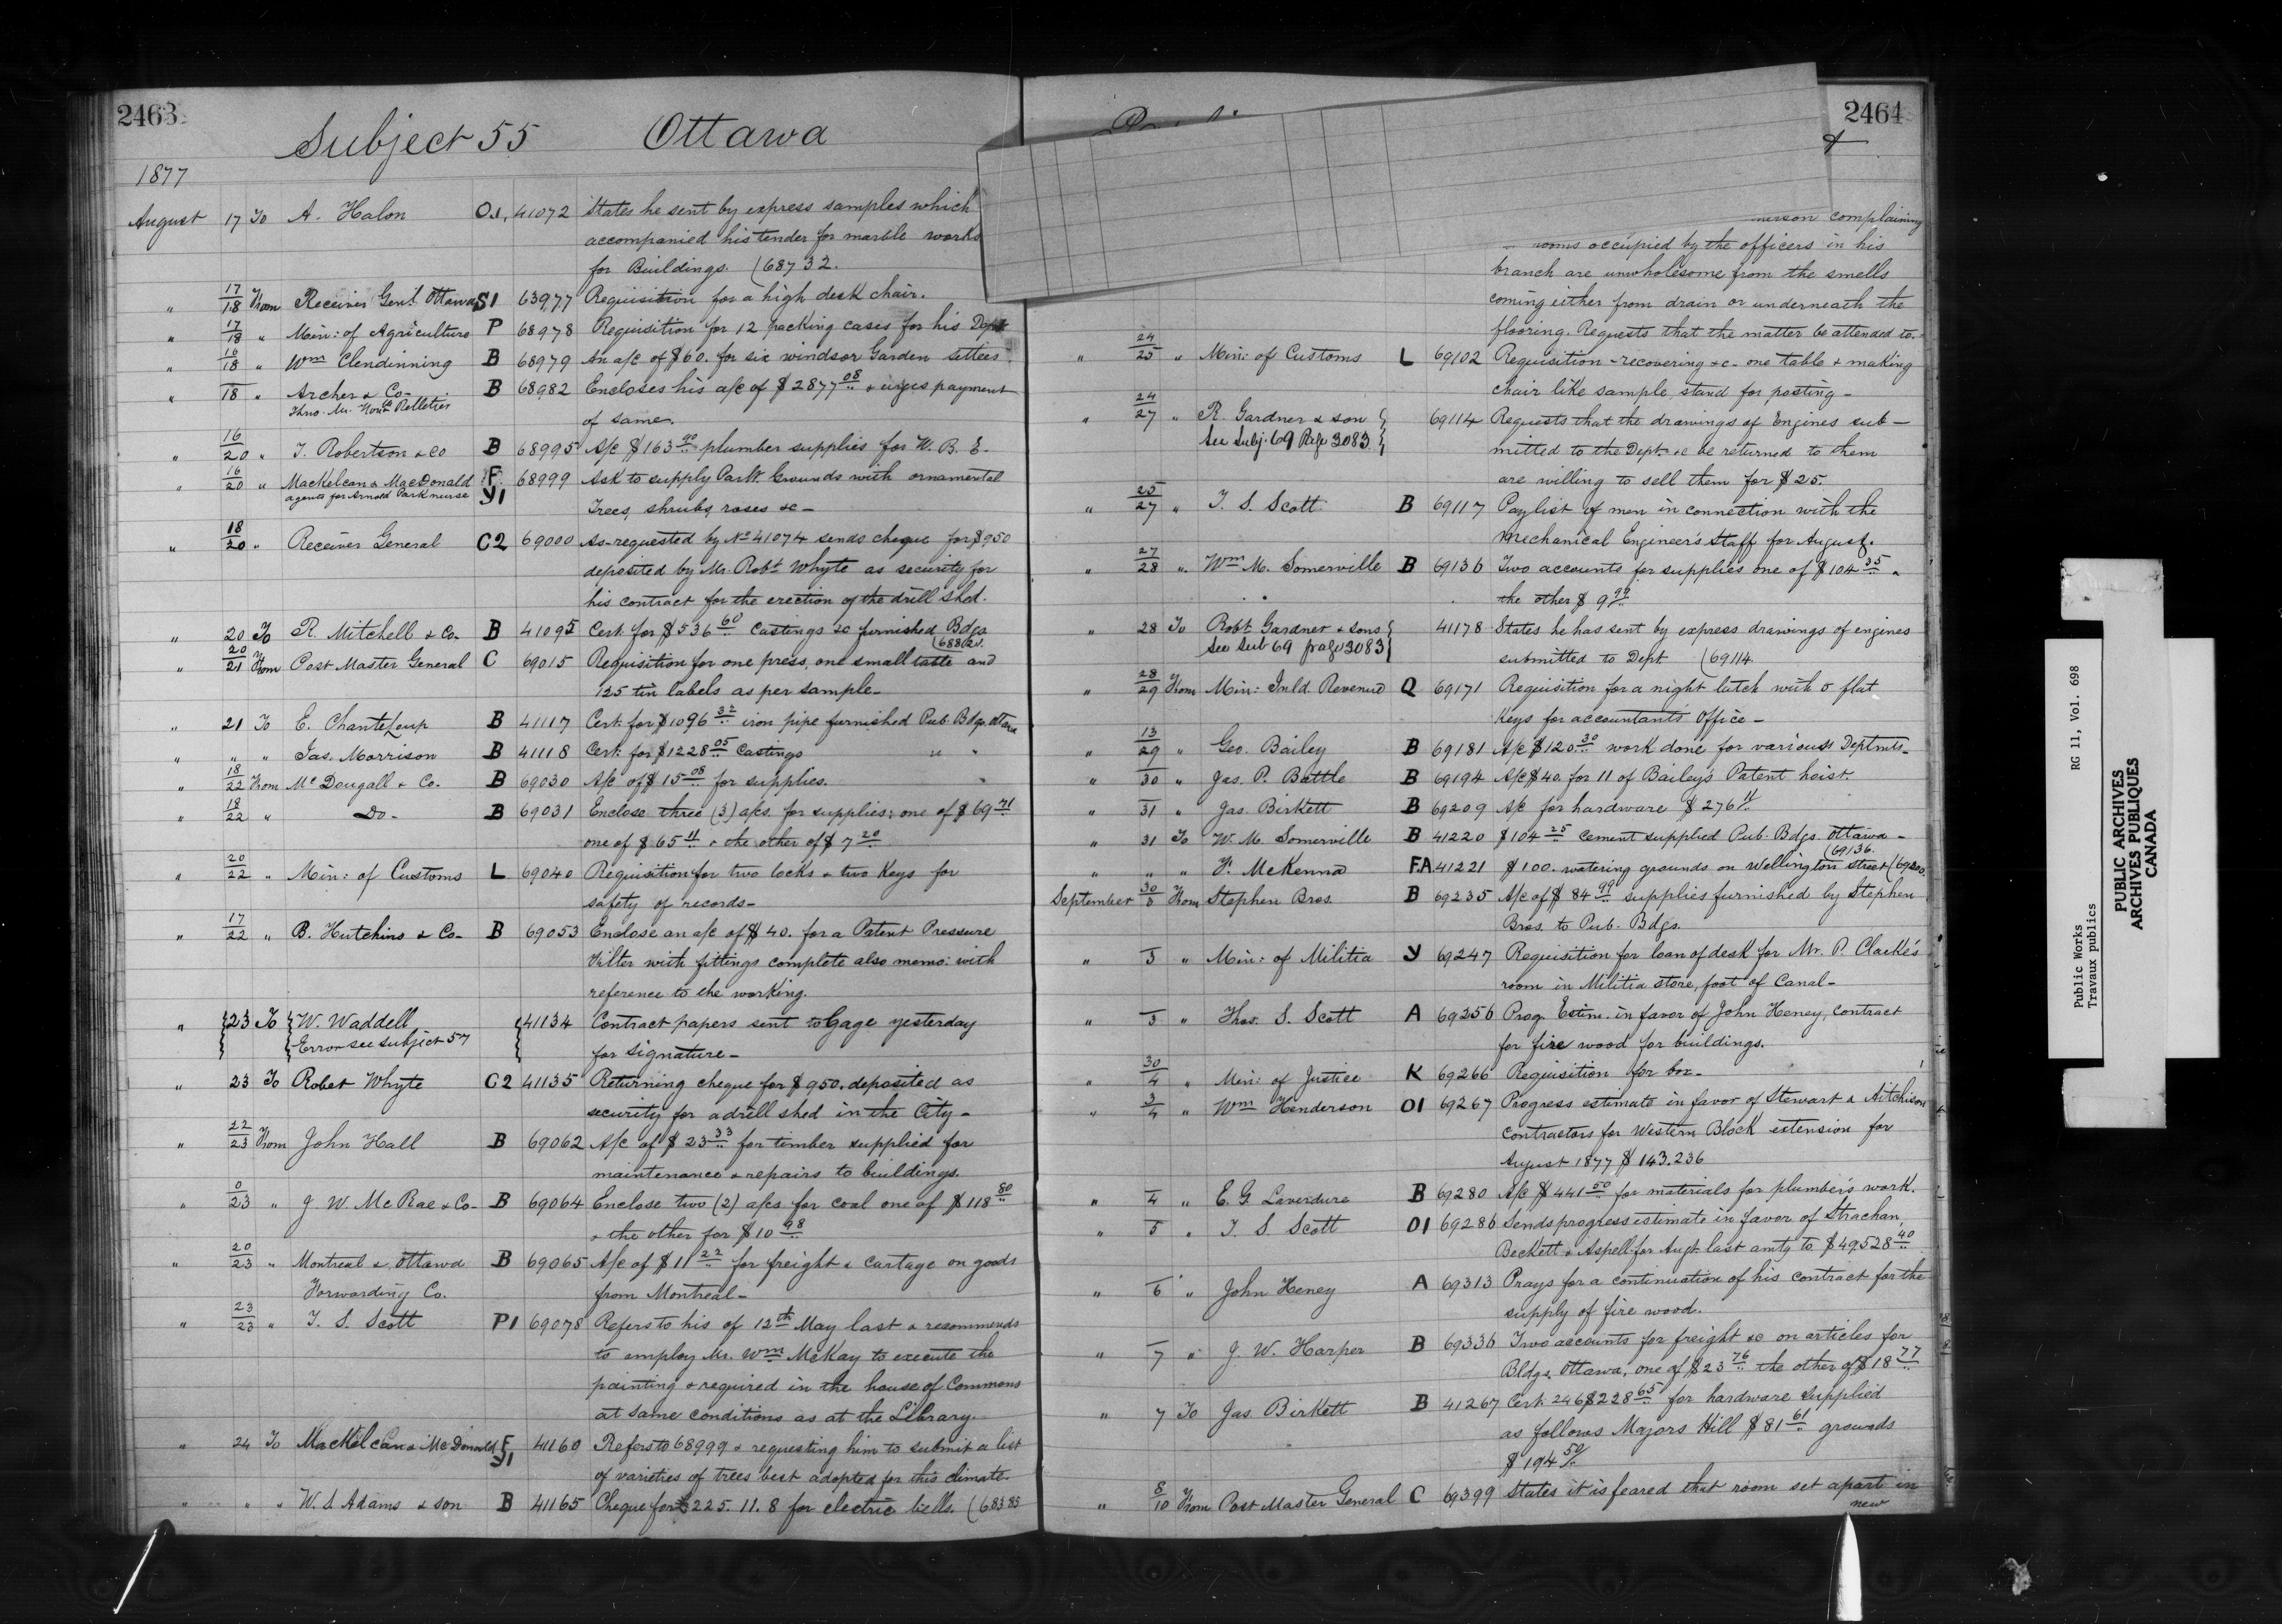 2463
Subject 55 Ottawa
1877
August 17 To A. Halon O.1, 41072 States he sent by express samples which
accompanied his tender for marble works
for Buildings. (68732.
" 17/18 From Receiver Genl. Ottawa S1 63977 Requisition for a high desk chair.
" 17/18 " Min: of Agriculture P 68978 Requisition for 12 packing cases for his Dept
" 16/18 " Wm Clendinning B 68979 An a/c of $60. for six windsor Garden settees
" 18 " Archer & Co- B 68982 Encloses his a/c of $2877 08 & urges payment
Thro. Mr. Honble Pelletier
of same.
" 16/20 " T. Robertson & Co B 68995 A/c $163 90 plumber supplies for W. B. E.
" 16/20 " Mackelcan & MacDonald F 68999 Ask to supply Parlt. Grounds with ornamental
agents for Arnold Park nurse Y1
Trees, shrubs, roses &c-
" 18/20 " Receiver General C2 69000 As requested by No 41074 sends cheque for $950
deposited by Mr. Robt Whyte as security for
his contract for the erection of the drill shed.
" 20 To R. Mitchell & Co- B 41095 Cert. for $536 60 Castings &c furnished Bdgs
" 20/21 From Post Master General C 69015 Requisition for one press, one small table and
125 tin labels as per sample-
" 21 To E. ChanteLoup B 41117 Cert. for $1096 32 iron pipe furnished Pub. Bdgs. Ottawa
" " " Jas. Morrison B 41118 Cert. for $1228 05 Castings " "
" 18/22 From Mc Dougall & Co. B 69030 A/c of $15 08 for supplies. "
" 18/22 " Do- B 69031 Enclose three (3) a/cs. for supplies; one of $69 71
one of $65 11 & the other of $7 20
" 20/22 " Min: of Customs L 69040 Requisition for two locks & two Keys for
safety of records-
" 17/22 " B. Hutchins & Co- B 69053 Enclose an a/c of $40. for a Patent Pressure
Filter with fittings complete also memo: with
reference to the working.
" 23 To W. Waddell 41134 Contract papers sent to Gage yesterday
Error see subject 57
for signature-
" 23 To Robet Whyte C2 41135 Returning cheque for $950. deposited as
security for a drill shed in the City-
" 22/23 From John Hall B 69062 A/c of $23 33 for timber supplied for
maintenance & repairs to buildings.
" 0/23 " J. W. Mc Rae & Co- B 69064 Enclose two (2) a/cs for coal one of $118 80
& the other for $10 98
" 20/23 " Montreal & Ottawa B 69065 A/c of $11 22 for freight & Cartage on goods
Forwarding Co. from Montreal-
" 23/23 " T. S. Scott P1 69078 Refers to his of 12th May last & recommends
to employ Mr. Wm McKay to execute the
painting & required in the house of Commons
at same conditions as at the Library.
" 24 To Mackelcan & McDonald F 41160 Refers to 68999 & requesting him to submit a list
Y1
of varieties of trees best adopted for this climate
" " " W. S. Adams & son B 41165 Cheque for £225. 11. 8 for electric bells. (68383
2464
complaining
rooms occupied by the officers in his
branch are unwholesome from the smells
coming either from drain or underneath the
flooring. Requests that the matter be attended to.
" 24/25 " Min: of Customs L 69102 Requisition - recovering &c- one table & making
chair like sample, stand for posting-
" 24/27 " R. Gardner & son 69114 Requests that the drawings of Engines sub-
See Subj: 69 Page 3083
mitted to the Dept &c be returned to them
are willing to sell them for $25.
" 25/27 " T. S. Scott B 69117 Paylist of men in connection with the
Mechanical Engineer's Staff for August.
" 27/28 " Wm M. Somerville B 69136 Two accounts for supplies one of $104 35 &
the other $9 99
" 28 To Robt Gardner & sons 41178 States he has sent by express drawings of engines
See Sub 69 page 3083
submitted to Dept (69114
" 28/29 From Min: Inld. Revenue Q 69171 Requisition for a night latch with 5 flat
Keys for accountants Office-
" 13/29 " Geo. Bailey B 69181 A/c $120 30 work done for various Deptmts-
" 30 " Jas. P. Battle B 69194 A/c $40. for 11 of Bailey's Patent hoist.
" 31 " Jas. Birkett B 69209 A/c for hardware $276 11
" 31 To W. M. Somerville B 41220 $104 25 cement supplied Pub. Bdgs. Ottawa-
(69136.
" " " McKenna F.A 41221 $100. watering grounds on Wellington street
September 30/3 From Stephen Bros. B 69235 A/c of $84 99 supplies furnished by Stephen
Bros. to Pub. Bdgs.
" 3 " Min: of Militia Y 69247 Requisition for loan of desk for Mr. P. Clarke's
room in Militia store, foot of Canal-
" 3 " Thos. S. Scott A 69256 Prog. Estim. in favor of John Heney, contract
for fire wood for buildings.
" 30/4 " Min: of Justice K 69266 Requisition for box-
" 3/4 " Wm Henderson O1 69267 Progress estimate in favor of Stewart & Aitchison
contractors for Western Block extension for
August 1877 $143.236
" 4 " E. G. Laverdure B 69280 A/c $441 50 for materials for plumber's work.
" 5 " T. S. Scott O1 69286 Sends progress estimate in favor of Strachan,
Beckett & Aspell for Augt. last amtg to $49,528 40
" 6 " John Heney A 69313 Prays for a continuation of his contract for the
supply of fire wood.
" 7 " J. W. Harper B 69336 Two accounts for freight &c on articles for
Bldgs. Ottawa, one of $23 76 the other of $18 77
" 7 To Jas. Birkett B 41267 Cert. 246 $228 65 for hardware supplied
as follows Majors Hill $81 61 grounds
$194 50
" 8/10 From Post Master General C 69399 States it is feared that room set apart in
new
Public Works RG 11, Vol. 698
Travaux publics
PUBLIC ARCHIVES
ARCHIVES PUBLIQUES
CANADA